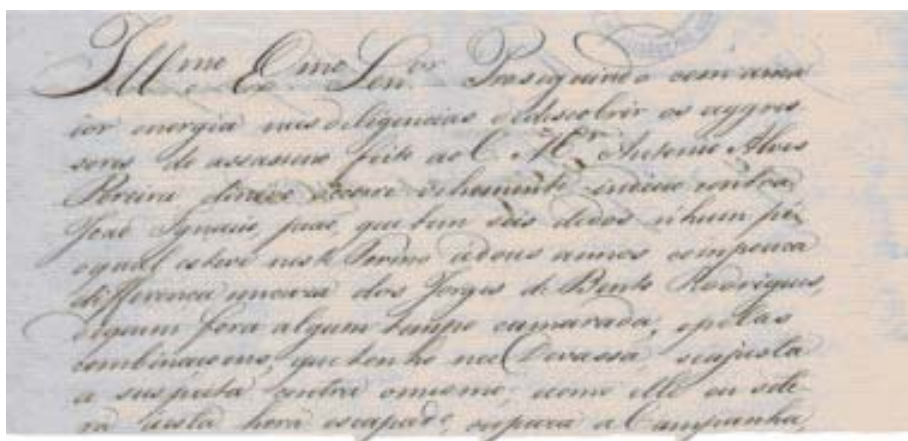 Ill.mo Ex.mo Sen.or Proseguindo com a ma
ior energia nas diligencias de descobrir os aggres
sores do assasino feito ao C. M.r Antonio Alves
Pereira vehemente indicio contra
João Ignacio, que tem seis dedos n'hum pé,
o qual esteve neste Termo a dous annos com pouca
differença em caza dos Jorges de Bento Rodrigues,
de quem fora algum tempo camarada, e pelas
combinacoens, que tenho na Devassa, se ajusta
a suspeita contra o mesmo; como elle
rá a esta hora escapado, ou para a Campanha,